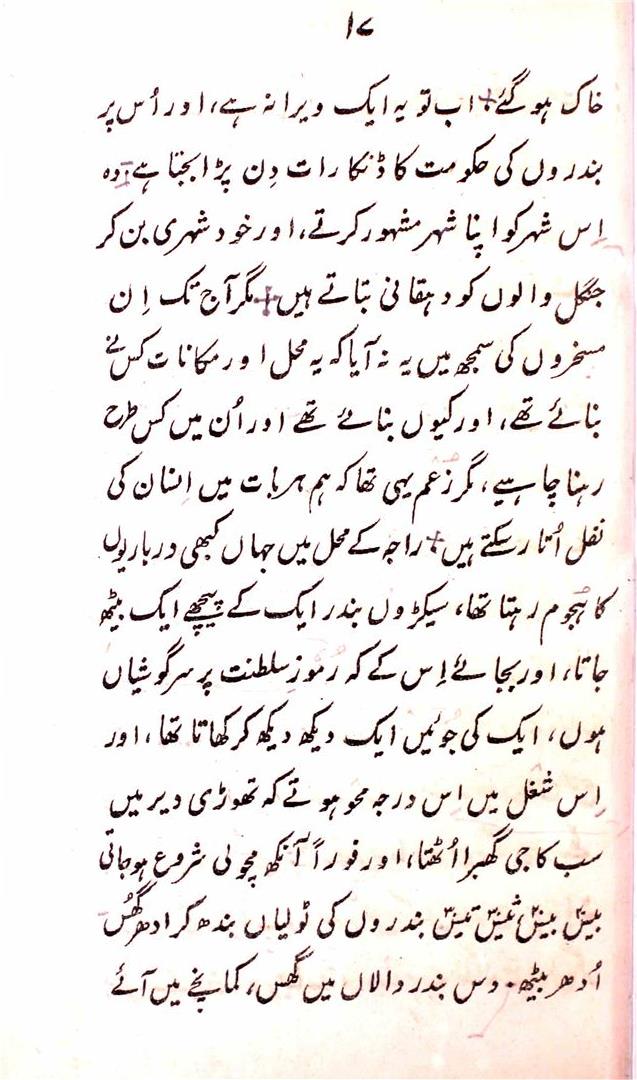 ۱۷
خاک ہو گئے + اب تو یہ ایک ویرانہ ہے، اور اُس پر
بندروں کی حکومت کا ڈنکا رات دِن پڑا بجتا ہے۔ وہ
اِس شہر کو اپنا شہر مشہور کرتے، اور خود شہری بن کر
جنگل والوں کو دہقانی بتاتے ہیں + مگر آج تک اِن
مسخروں کی سمجھ میں یہ نہ آیا کہ یہ محل اور مکانات کس نے
بنائے تھے، اور کیوں بنائے تھے اور اُن میں کس طرح
رہنا چاہیے، مگر زعم یہی تھا کہ ہم ہر بات میں اِنسان کی
نقل اُتار سکتے ہیں + راجہ کے محل میں جہاں کبھی درباریوں
کا ہجوم رہتا تھا، سیکڑوں بندر ایک کے پیچھے ایک بیٹھ
جاتا، اور بجائے اِس کے کہ رموزِ سلطنت پر سرگوشیاں
ہوں، ایک کی جوئیں ایک دیکھ دیکھ کر کھاتا تھا، اور
اِس شغل میں اِس درجہ محو ہوتے کہ تھوڑی دیر میں
سب کا جی گھبرا اُٹھتا، اور فوراً آنکھ مچولی شروع ہو جاتی
بیس بیس، تیس تیس بندروں کی ٹولیاں بندھ کر ادھر گھُس
اُدھر بیٹھ۔ دس بندر دالان میں گھس، کمانچے میں آئے